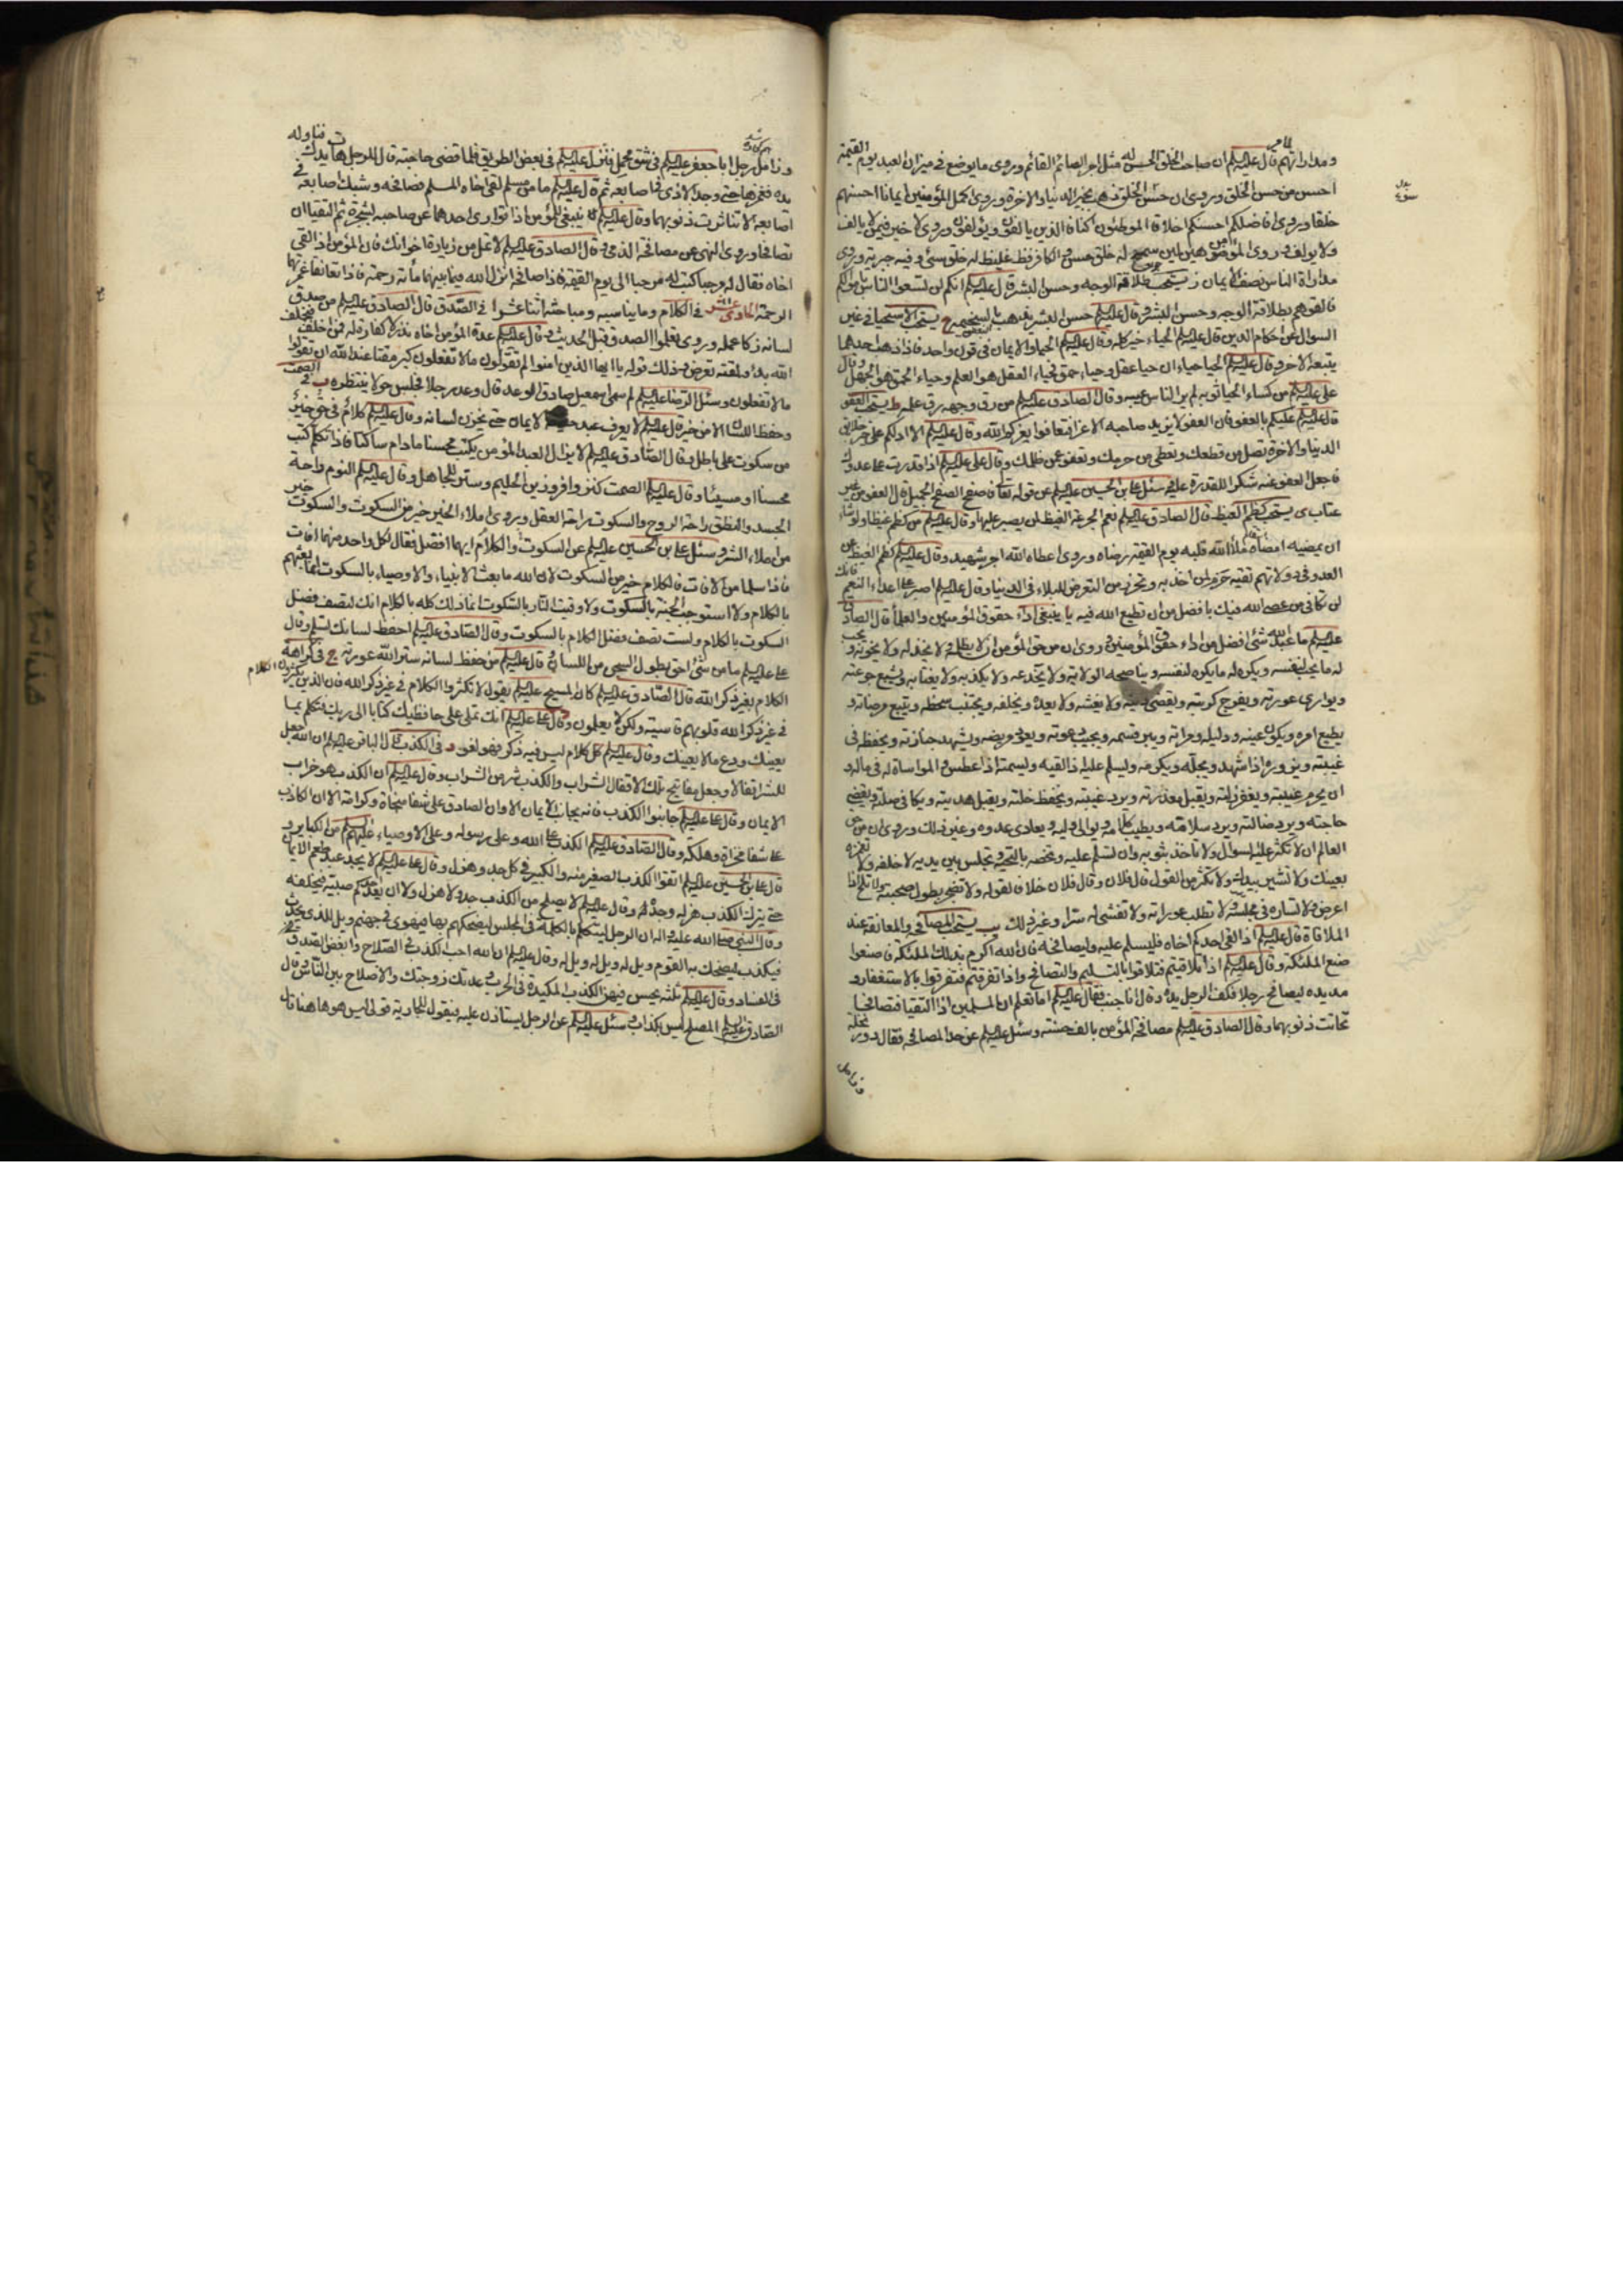 ومداراتهم قال عليه السلم ان صاحب الخلق الحسن له مثل اجر الصائم القائم وروى ما يوضع فى ميزان العبد يوم القيمة
احسن من حسن الخلق وروى ان حسن الخلق ذهب بخير الدنيا والاخرة وروى اكمل المؤمنين ايمانا احسنهم
خلقا وروى افاضلكم احسنكم اخلاقا الموطئون اكنافا الذين يالفون ويؤلفون وروى لا خير فيمن لا يالف
ولا يولف وروى المؤمن هين لين سمح له خلق حسن والكافر فظ غليظ له خلق سئ وفيه جبرية وروى
مداراة الناس نصف الايمان ز يستحب طلاقة الوجه وحسن البشر قال عليه السلم انكم لن تسعوا الناس باموالكم
فالقوهم بطلاقة الوجه وحسن البشر وقال عليه السلم حسن البشر يذهب بالسخيمة ح يستحب الاستحيا فى غير
السؤال عن احكام الدين قال عليه السلم الحياء خير كله وقال عليه السلم الحياء والايمان فى قرن واحد فاذا ذهب احدهما
يتبعه الاخر وقال عليه السلم الحيا حياءان حياء عقل وحياء حمق فحياء العقل هو العلم وحياء الحمق هو الجهل وقال
على عليه السلم من كساه الحيا ثوبه لم ير الناس عيبه وقال الصادق عليه السلم من رق وجهه رق علمه ط يستحب العفو
قال عليه السلم عليكم بالعفو فان العفو لا يزيد صاحبه الا عزا فتعافوا يعزكم الله وقال عليه السلم الا ادلكم على خير خلائق
الدنيا والاخرة تصل من قطعك وتعطى من حرمك وتعفو عن ظلمك وقال على عليه السلم اذا قدرت على عدوك
فاجعل العفو عنه شكرا للقدرة عليه سئل على بن الحسين عليه السلم عن قوله تعالى فاصفح الصفح الجميل قال العفو من غير
عتاب ى يستحب كظم الغيظ قال الصادق عليه السلم نعم الجرعة الغيظ لمن يصبر عليها وقال عليه السلم من كظم غيظا ولو شاء
ان يمضيه امضاه ملأ الله قلبه يوم القيمة رضاه وروى اعطاه الله اجر شهيد وقال عليه السلم كظم الغيظ عن
العدو فى دولاتهم تقية حزم لمن اخذ به وتحرز من التعرض للبلاء فى الدنيا وقال عليه السلم اصبر على اعداء النعم فانك
لن تكافى من عصى الله فيك بافضل من ان تطيع الله فيه يا ينبغى اداء حقوق المؤمنين والعلماء قال الصادق
عليه السلم ما عبد الله بشئ افضل من اداء حق المؤمنين وروى ان من حق المؤمن ان لا يظلمه ولا يخذله ولا يخونه ويحب
له ما يحب لنفسه ويكره له ما يكره لنفسه ويناصحه الولاية ولا يخدعه ولا يكذبه ولا يغتابه ويشبع جوعته
ويوارى عورته ويفرج كربته ويقضى دينه ولا يغشه ولا يعده ويخلفه ويجتنب سخطه ويتبع مرضاته و
يطيع امره ويكون عينه ودليله ومراته ويبر قسمه ويجيب دعوته ويعود مريضه ويشهد جنازته ويحفظه فى
غيبته ويزوره اذا شهد ويجله ويكرمه ويسلم عليه اذا لقيه ويسمته اذا عطس والمواساة له فى ماله و
ان يحرم غيبته ويغفر زلته ويقبل معذرته ويرد غيبته ويحفظ خلته ويقبل هديته ويكافى صلته ويقضى
حاجته ويرد ضالته ويرد سلامه ويطيب كلامه ويوالى وليه ويعادى عدوه وغير ذلك وروى ان من حق
العالم ان لا تكثر عليه السؤال ولا تأخذ بثوبه وان تسلم عليه وتخصه بالتحية وتجلس بين يديه لا خلفه ولا تغمزه
بعينك ولا تشير بيدك ولا تكثر من القول قال فلان وقال فلان خلافا لقوله ولا تضجر بطول صحبته ولا تلح اذا
اعرض ولا تساره فى مجلسه ولا تطلب عوراته ولا تفشى له سرا وغير ذلك يب يستحب المصافحة والمعانقة عند
الملاقاة قال عليه السلم اذا لقى احدكم اخاه فليسلم عليه وليصافحه فان الله اكرم بذلك الملئكة فاصنعوا
صنع الملئكة وقال عليه السلم اذا تلاقيتم فتلاقوا بالتسليم والتصافح واذا تفرقتم فتفرقوا بالاستغفار و
مد يده ليصافح رجلا فكف الرجل يده وقال انا جنب فقال عليه السلم اما تعلم ان المسلمين اذا التقيا فتصافحا
تحاتت ذنوبهما وقال الصادق عليه السلم مصافحة المؤمن بالف حسنة وسئل عليه السلم عن حد المصافحة فقال دور نخلة
وزامل
وزامل رجل ابا جعفر عليه السلم فى شق محمل فنزل عليه السلم فى بعض الطريق فلما قضى حاجته قال للرجل هات يدك فناوله
يده فغمزها حتى وجد الاذى فى اصابعه ثم قال عليه السلم ما من مسلم لقى اخاه المسلم فصافحه وشبك اصابعه فى
اصابعه الا تناثرت ذنوبهما وقال عليه السلم ينبغى للمؤمن اذا توارى احدهما عن صاحبه بشجرة ثم التقيا ان
تصافحا وروى النهى عن مصافحة الذمى وقال الصادق عليه السلم لا تمل من زيارة اخوانك فان المؤمن اذا لقى
اخاه فقال له مرحبا كتب له مرحبا الى يوم القيمة فاذا صافحه انزل الله فيما بينهما مأئة رحمة فاذا تعانقا غمرتهما
الرحمة الحادى عشر فى الكلام وما يناسبه ومباحثه اثنا عشر ا فى الصدق قال الصادق عليه السلم من صدق
لسانه زكا عمله وروى تعلموا الصدق قبل الحديث وقال عليه السلم عدة المؤمن اخاه نذر لا كفارة له فمن اخلف فبخلف
الله بدأ ولمقته تعرض وذلك قوله يا ايها الذين امنوا لم تقولون ما لا تفعلون كبر مقتا عند الله ان تقولوا
ما لا تفعلون وسئل الرضا عليه السلم لم سمى اسمعيل صادق الوعد قال وعد رجلا فجلس حولا ينتظره ب فى الصمت
وحفظ اللسان الا من خير قال عليه السلم لا يعرف عبد حقيقة الايمان حتى يخزن لسانه وقال عليه السلم كلام فى حق خير
من سكوت على باطل وقال الصادق عليه السلم لا يزال العبد المؤمن يكتب محسنا ما دام ساكتا فاذا تكلم كتب
محسنا او مسيئا وقال عليه السلم الصمت كنز وافر وزين الحليم وستر للجاهل وقال عليه السلم النوم راحة
الجسد والنطق راحة الروح والسكوت راحة العقل وروى املاء الخير خير من السكوت والسكوت خير
من املاء الشر وسئل على بن الحسين عليه السلم عن السكوت والكلام ايهما افضل فقال لكل واحد منهما افات
فاذا سلما من الافات فالكلام خير من السكوت لان الله ما بعث الانبياء والاوصياء بالسكوت انما بعثهم
بالكلام ولا استوجبت الجنة بالسكوت ولا وقيت النار بالسكوت انما ذلك كله بالكلام انك لتصف فضل
السكوت بالكلام ولست تصف فضل الكلام بالسكوت وقال الصادق عليه السلم احفظ لسانك تسلم وقال
على عليه السلم ما من شئ احق بطول السجن من اللسان وقال عليه السلم من حفظ لسانه ستر الله عورته ج فى كراهة
الكلام بغير ذكر الله قال الصادق عليه السلم كان المسيح عليه السلم يقول لا تكثروا الكلام فى غير ذكر الله فان الذين يكثرون الكلام
فى غير ذكر الله قلوبهم قاسية ولكن لا يعلمون وقال على عليه السلم انك تملى على حافظيك كتابا الى ربك فتكلم بما
يعينك ودع ما لا يعينك وقال عليه السلم كل كلام ليس فيه ذكر فهو لغو د فى الكذب قال الباقر عليه السلم ان الله جعل
للشر اقفالا وجعل مفاتيح تلك الاقفال الشراب والكذب شر من الشراب وقال عليه السلم ان الكذب هو خراب
الايمان وقال على عليه السلم جانبوا الكذب فانه يجانب الايمان الا وان الصادق على شفا منجاة وكرامة الا ان الكاذب
على شفا مخزاة وهلكة وقال الصادق عليه السلم الكذب على الله وعلى رسوله وعلى الاوصياء عليهم السلم من الكباير و
قال على بن الحسين عليه السلم اتقوا الكذب الصغير منه والكبير فى كل جد وهزل وقال على عليه السلم لا يجد عبد طعم الايمان
حتى يترك الكذب هزله وجده وقال عليه السلم لا يصلح من الكذب جد ولا هزل ولا ان يعد احدكم صبيه فيخلفه
وقال النبى صلى الله عليه واله ان الرجل ليتكلم بالكلمة فى المجلس ليضحكهم بها فيهوى فى جهنم ويل للذى يحدث
فيكذب ليضحك به القوم ويل له ويل له ويل له وقال عليه السلم ان الله احب الكذب فى الصلاح وابغض الصدق
فى الفساد وقال عليه السلم ثلثة يحسن فيهن الكذب المكيدة فى الحرب وعدتك زوجتك والاصلاح بين الناس وقال
الصادق عليه السلم المصلح ليس بكذاب وسئل عليه السلم عن الرجل يستاذن عليه فيقول للجارية قولى ليس هو هاهنا قال